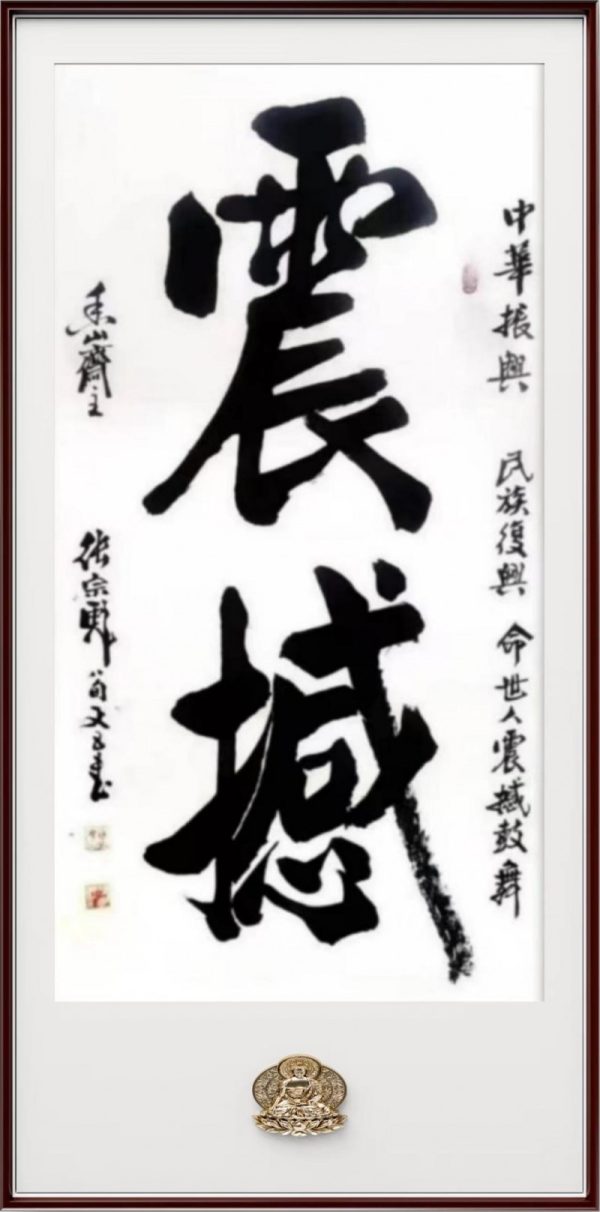 中華振興 民族復興 命世人震撼鼓舞
震撼
山齋主
張宗